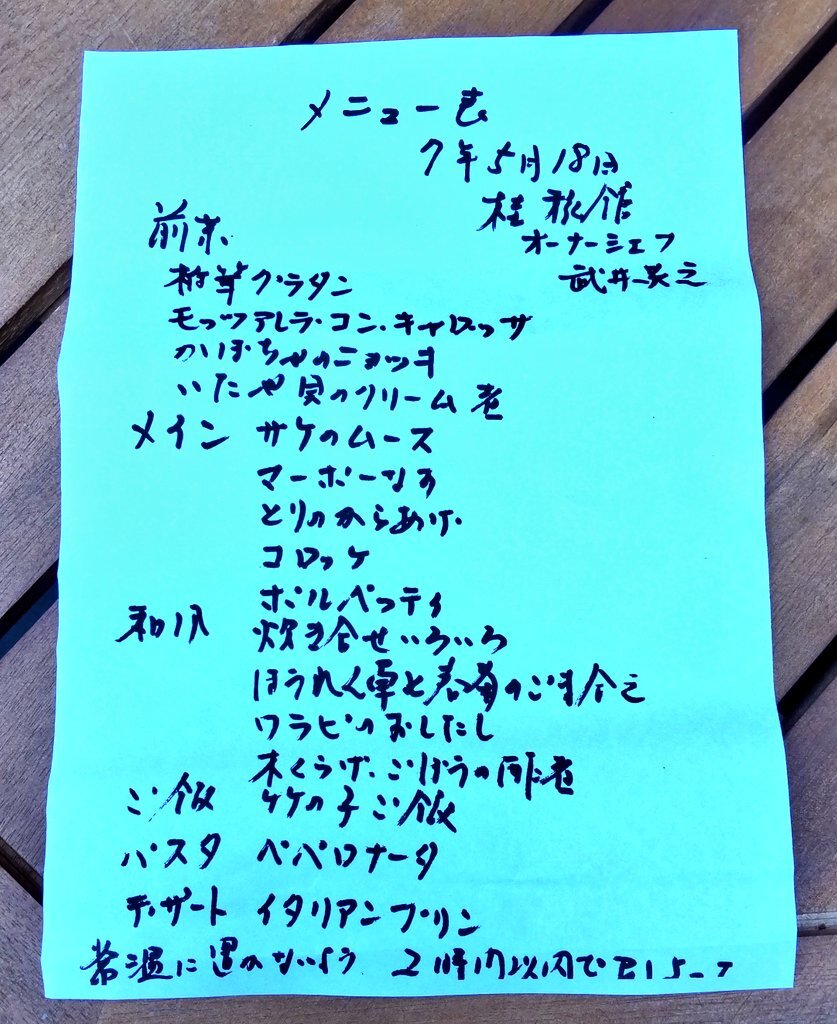 メニュー表
7年5月18日
桂旅館
オーナーシェフ
武井
前菜
グラタン
モッツアレラ・コン・キャロッサ
かぼちゃのニョッキ
いたや貝のクリーム煮
メイン サケのムース
マーボーなす
とりのからあげ
コロッケ
ポルペッティ
和風 炊き合せいろいろ
ほうれん草と春菊のごま合え
ワラビのおしたし
木くらげ、ごぼうの煮
ご飯 竹の子ご飯
パスタ ペペロナータ
デザート イタリアンプリン
常温に置かないよう 2時間以内で